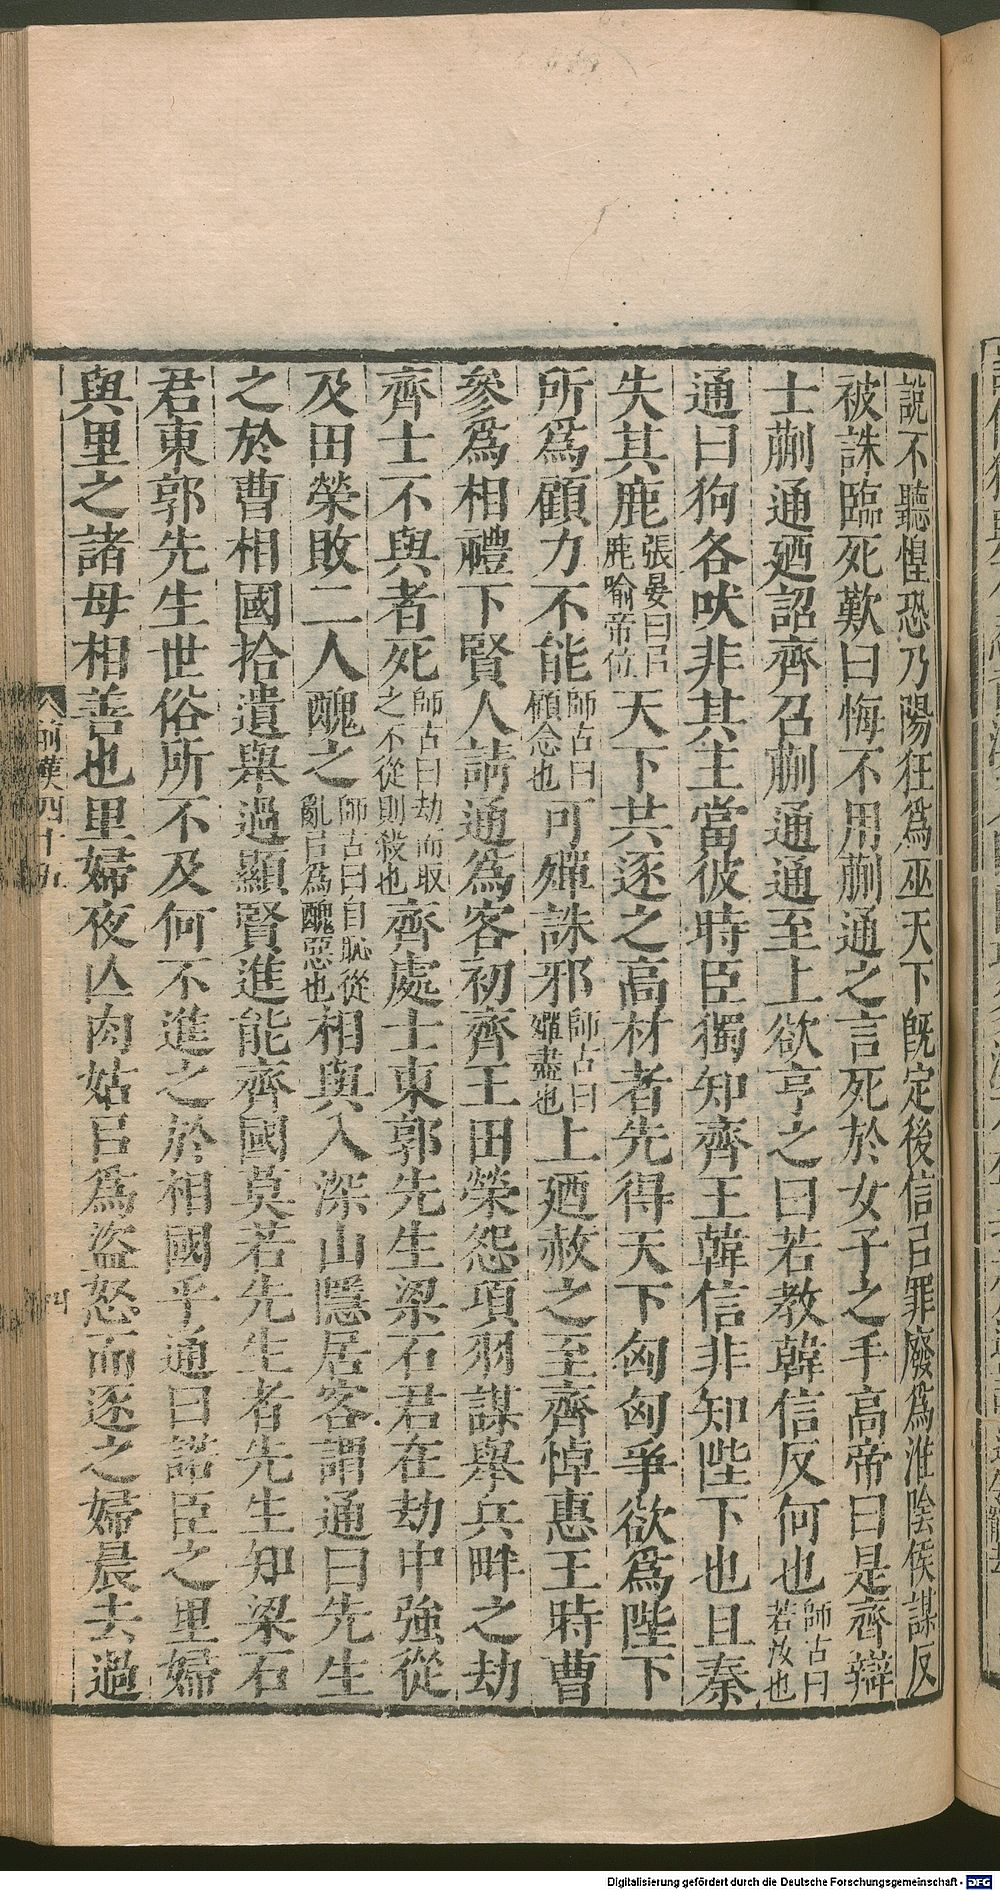 說不聽惶恐乃陽狂爲巫天下旣定後信㠯罪廢爲淮陰侯謀反
被誅臨死歎曰悔不用蒯通之言死於女子之手高帝曰是齊辯
士蒯通廼詔齊召蒯通通至上欲亨之曰若教韓信反何也師古曰若汝也
通曰狗各吠非其主當彼時臣獨知齊王韓信非知陛下也且秦
失其鹿張晏曰㠯鹿喻帝位天下共逐之高材者先得天下匈匈爭欲爲陛下
所爲顧力不能師古曰顧念也可殫誅邪師古曰殫盡也上廼赦之至齊悼惠王時曹
參爲相禮下賢人請通爲客初齊王田榮怨項羽謀舉兵畔之劫
齊士不與者死師古曰劫而取之不從則殺也齊處士東郭先生梁石君在劫中強從
及田榮敗二人醜之師古曰自恥從亂㠯爲醜惡也相與入深山隱居客謂通曰先生
之於曹相國拾遺舉過顯賢進能齊國莫若先生者先生知梁石
君東郭先生世俗所不及何不進之於相國乎通曰諾臣之里婦
與里之諸母相善也里婦夜亾肉姑㠯爲盜怒而逐之婦晨去過
前漢四十五
四
Digitalisierung gefördert durch die Deutsche Forschungsgemeinschaft - DFG